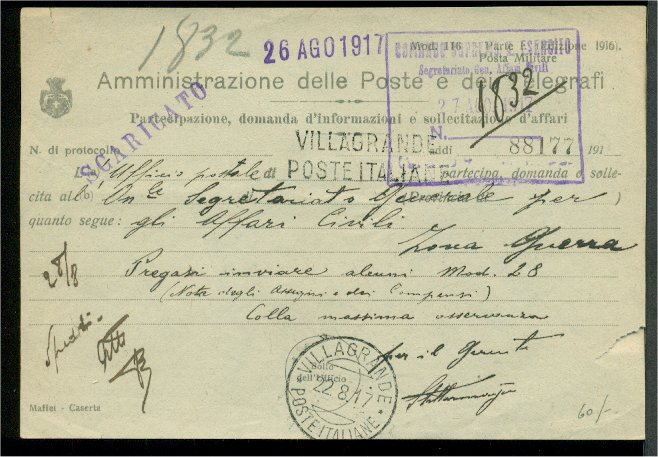 1832
26 AGO 1917
Mod. 116 Parte I (Edizione 1916).
Posta Militare
COMANDO SUPREMO R. ESERCITO
Segretariato Gen. Affari Civili
27 AGO 1917
1832
N.
88177
Amministrazione delle Poste e dei Telegrafi
Partecipazione, domanda d'informazioni e sollecitazione d'affari
SCARICATO
VILLAGRANDE
POSTE ITALIANE
N. di protocollo addi 191
L' Ufficio postale di partecipa, domanda o solle-
cita al On.le Segretariato Generale per
quanto segue: gli Affari Civili
Zona Guerra
Pregasi inviare alcuni Mod. 28
(Nota degli Assegni e dei Compensi)
Colla massima osservanza
per il Gerente
28/8
Spedito
Atto
Bollo
dell'Ufficio
VILLAGRANDE
22.8.17
* POSTE ITALIANE *
Maffei - Caserta
60/-